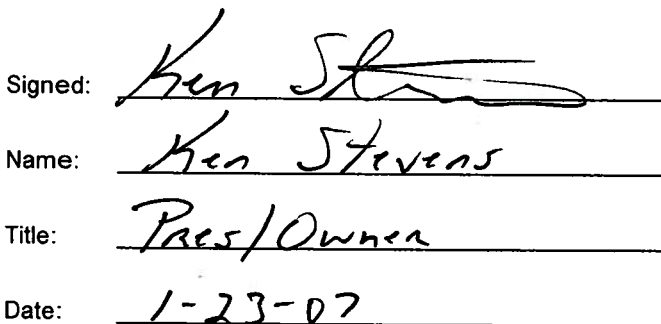 Signed: Ken St
Name: Ken Stevens
Title: Pres/Owner
Date: 1-23-07